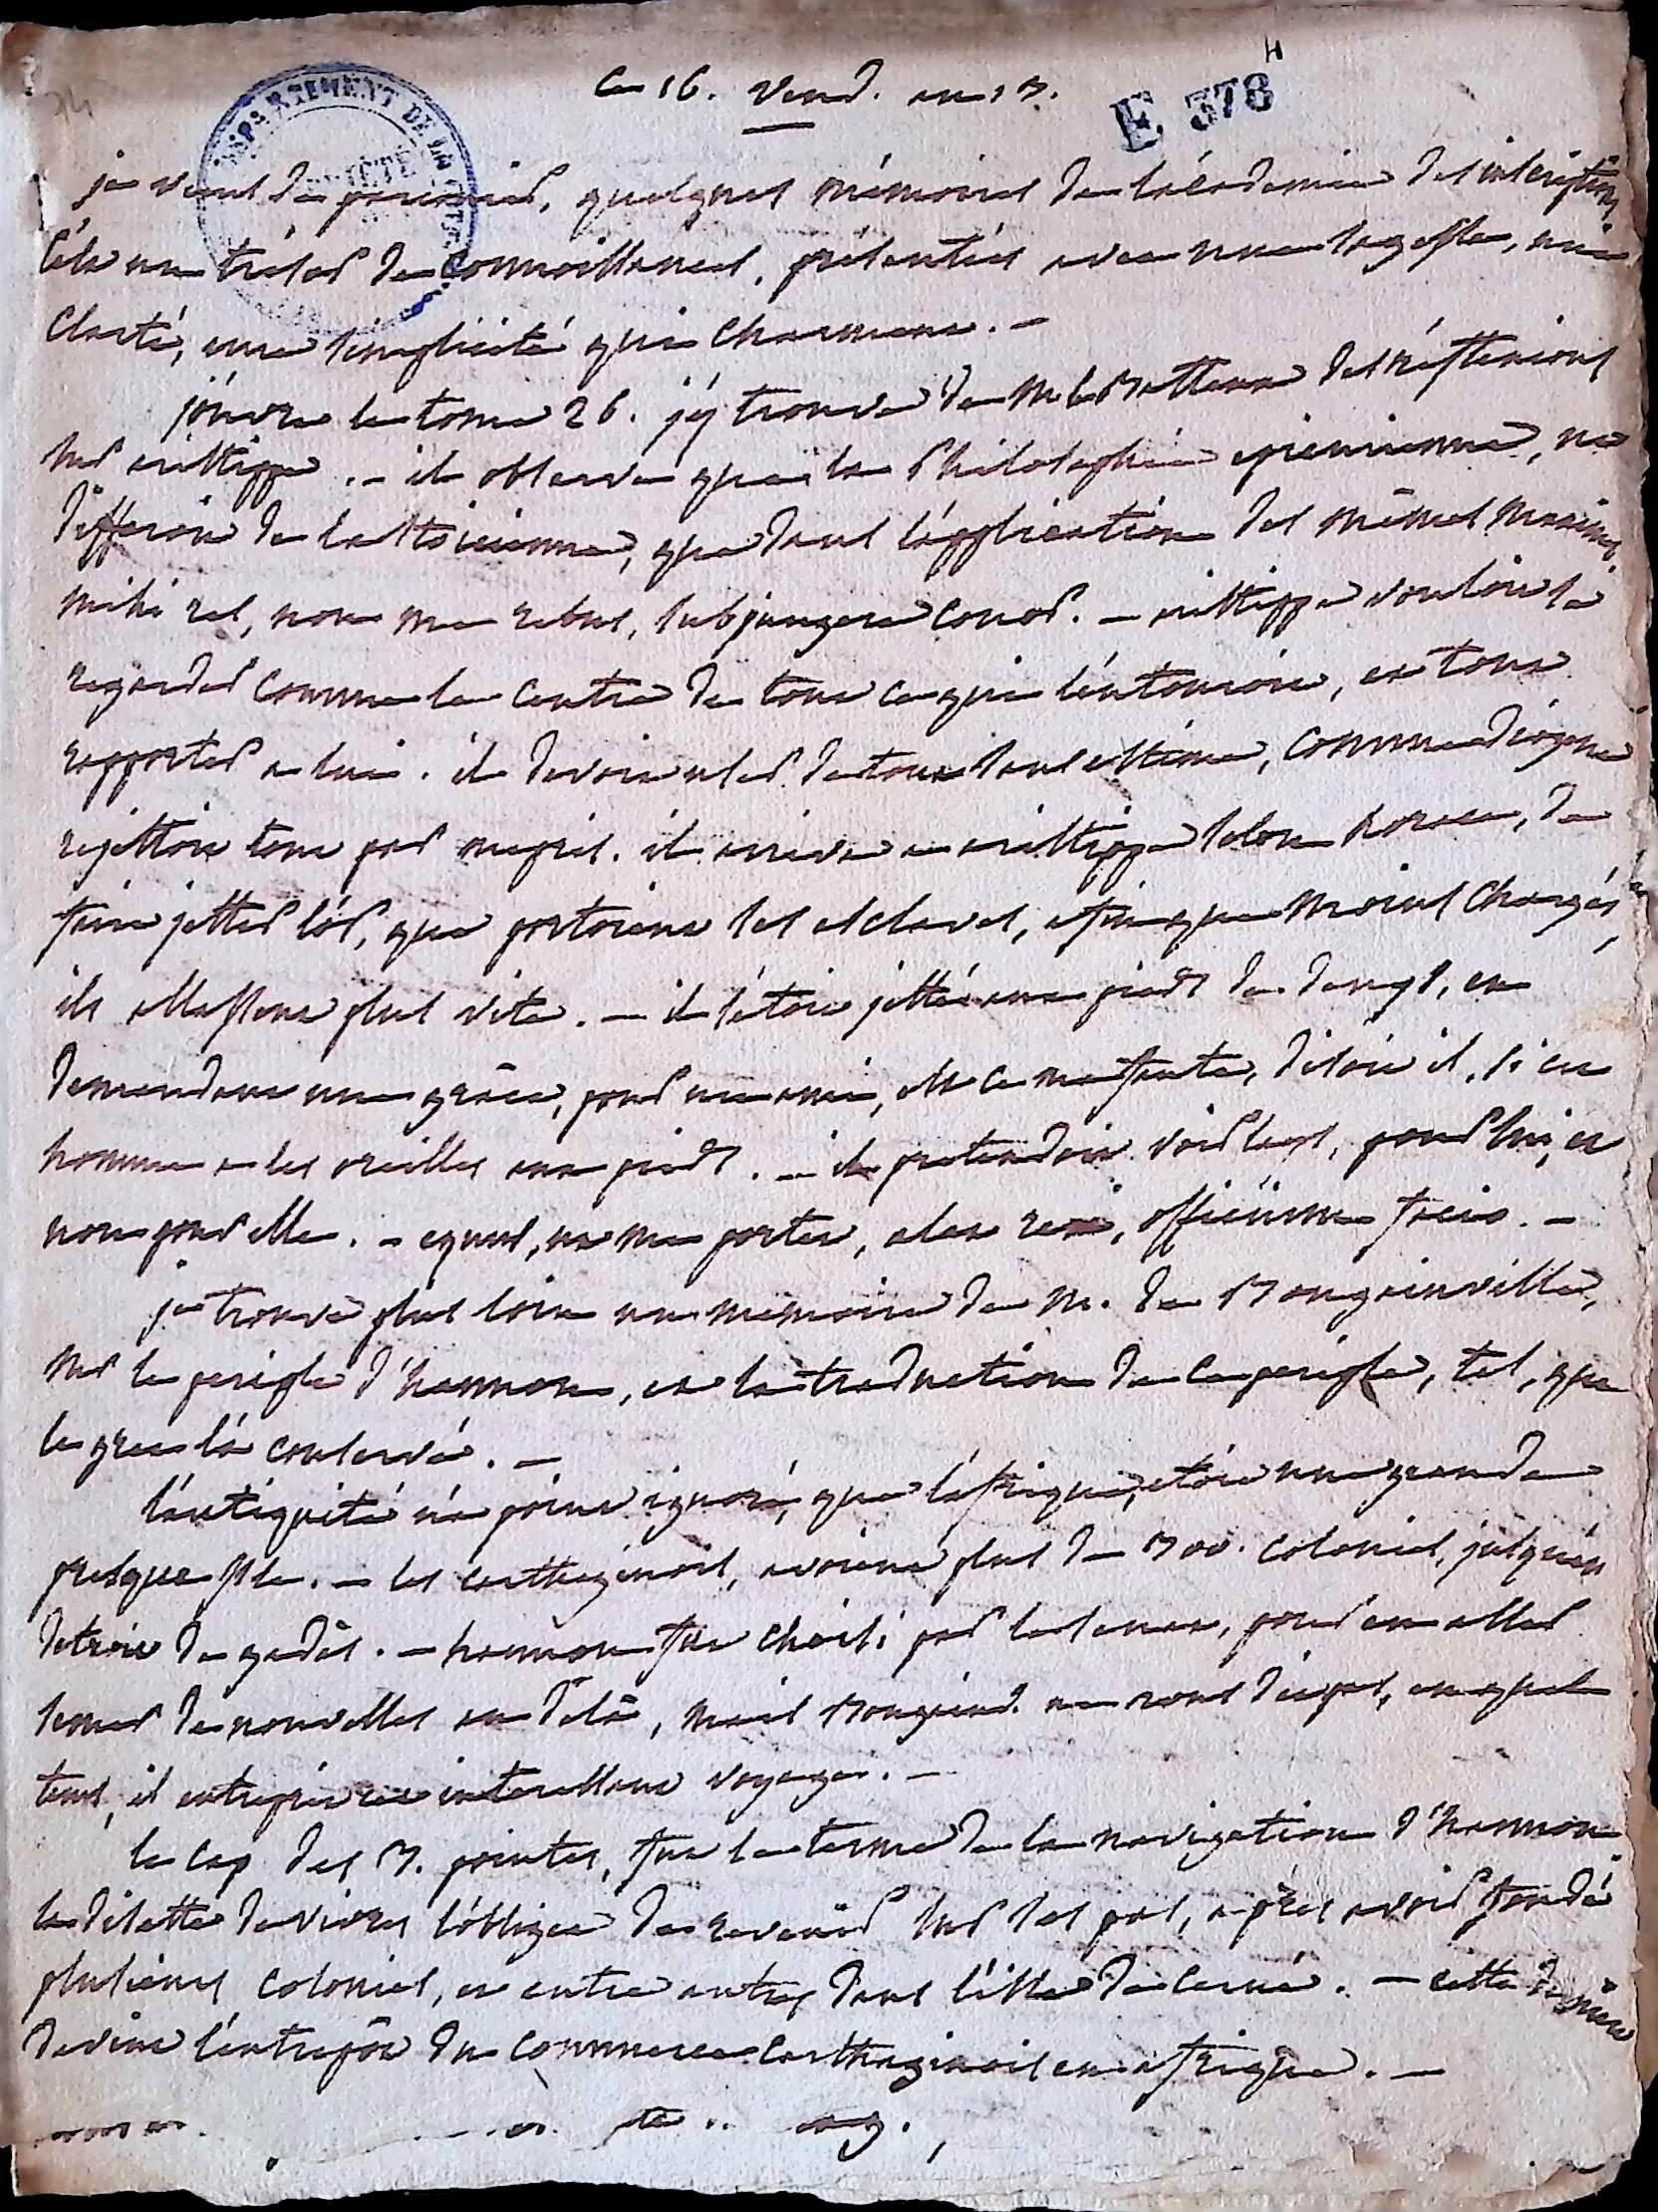 Ce 16. Vend. an 13.
E 378 H
DÉPARTEMENT DE LA
je viens de parcourir, quelques mémoires de l'académie des inscriptions
c'est un trésor de connoissances, présentées avec une sagesse, une
clarté, une simplicité qui charment. -
j'ouvre le tome 26. j'y trouve de M. le Batteux des réflexions
sur aristippe. - il observe que la philosophie epicurienne, ne
différoit de la stoicienne, que dans l'application des mêmes maximes.
mihi res, non me rebus, subjungere conor. - aristippe vouloit se
regarder comme le centre de tout ce qui l'entouroit, et tout
rapporter a lui. il devoit user de tout sans estime, comme diogene
rejettoit tout par mepris. il arriva a aristippe selon horace, de
faire jetter l'or, que portoient ses esclaves, afin que moins chargés,
ils allassent plus vite. - il s'étoit jetté aux pieds de denys, en
demandant une grâce, pour un ami, est ce ma faute, disoit il, si cet
homme a les oreilles aux pieds. - il pretendoit voir lays, pour lui, et
non pour elle. - equus, ut me portet, alat rex, officium facio. -
je trouve plus loin un memoire de M. de Bougainville,
sur le periple d'hannon, et la traduction de ce periple, tel, que
le grec l'a conservé. -
l'antiquité n'a point ignoré, que l'afrique, etoit une grande
presque isle. - les carthaginois, avoient plus de 300. colonies, jusqu'au
detroit de gadès. - hannon fut choisi par le senat, pour en aller
semer de nouvelles au delà, mais Bougainv. ne nous dit pas, en quel
tems, il entreprit cet interessant voyage. -
le cap des 3. pointes, fut le terme de la navigation d'hannon
la disette de vivres l'obligea de revenir sur ses pas, après avoir fondé
plusieurs colonies, et entre autres dans l'isle de cerné. - cette derniere
devint l'entrepôt du commerce carthaginois en afrique. -